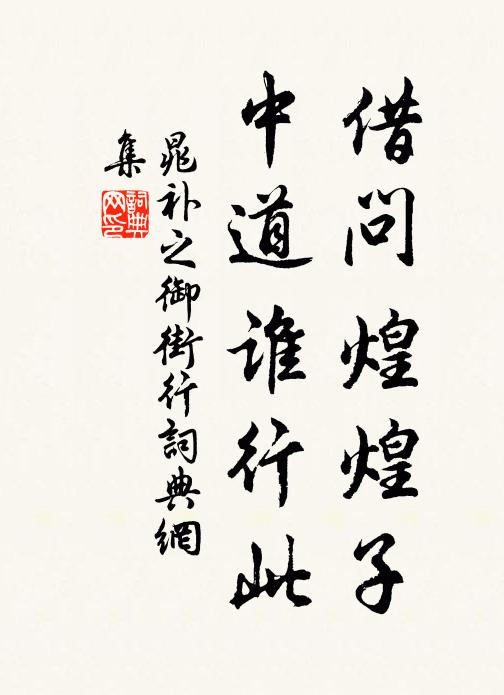 借问煌煌子
中道谁行此
晁补之御街行詞典網
集
詞典网印